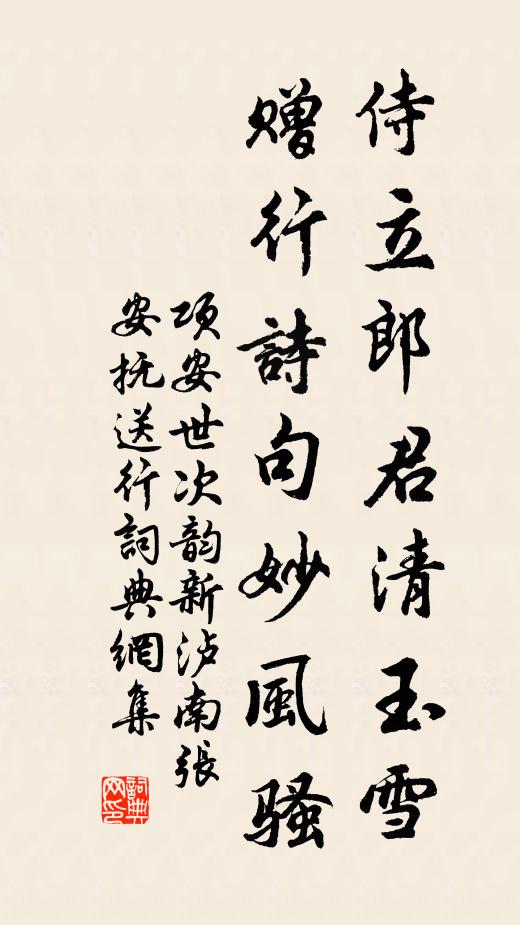 侍立郎君清玉雪
赠行詩句妙風骚
项安世次韵新泸南張
安抚送行詞典網集
詞典
网印